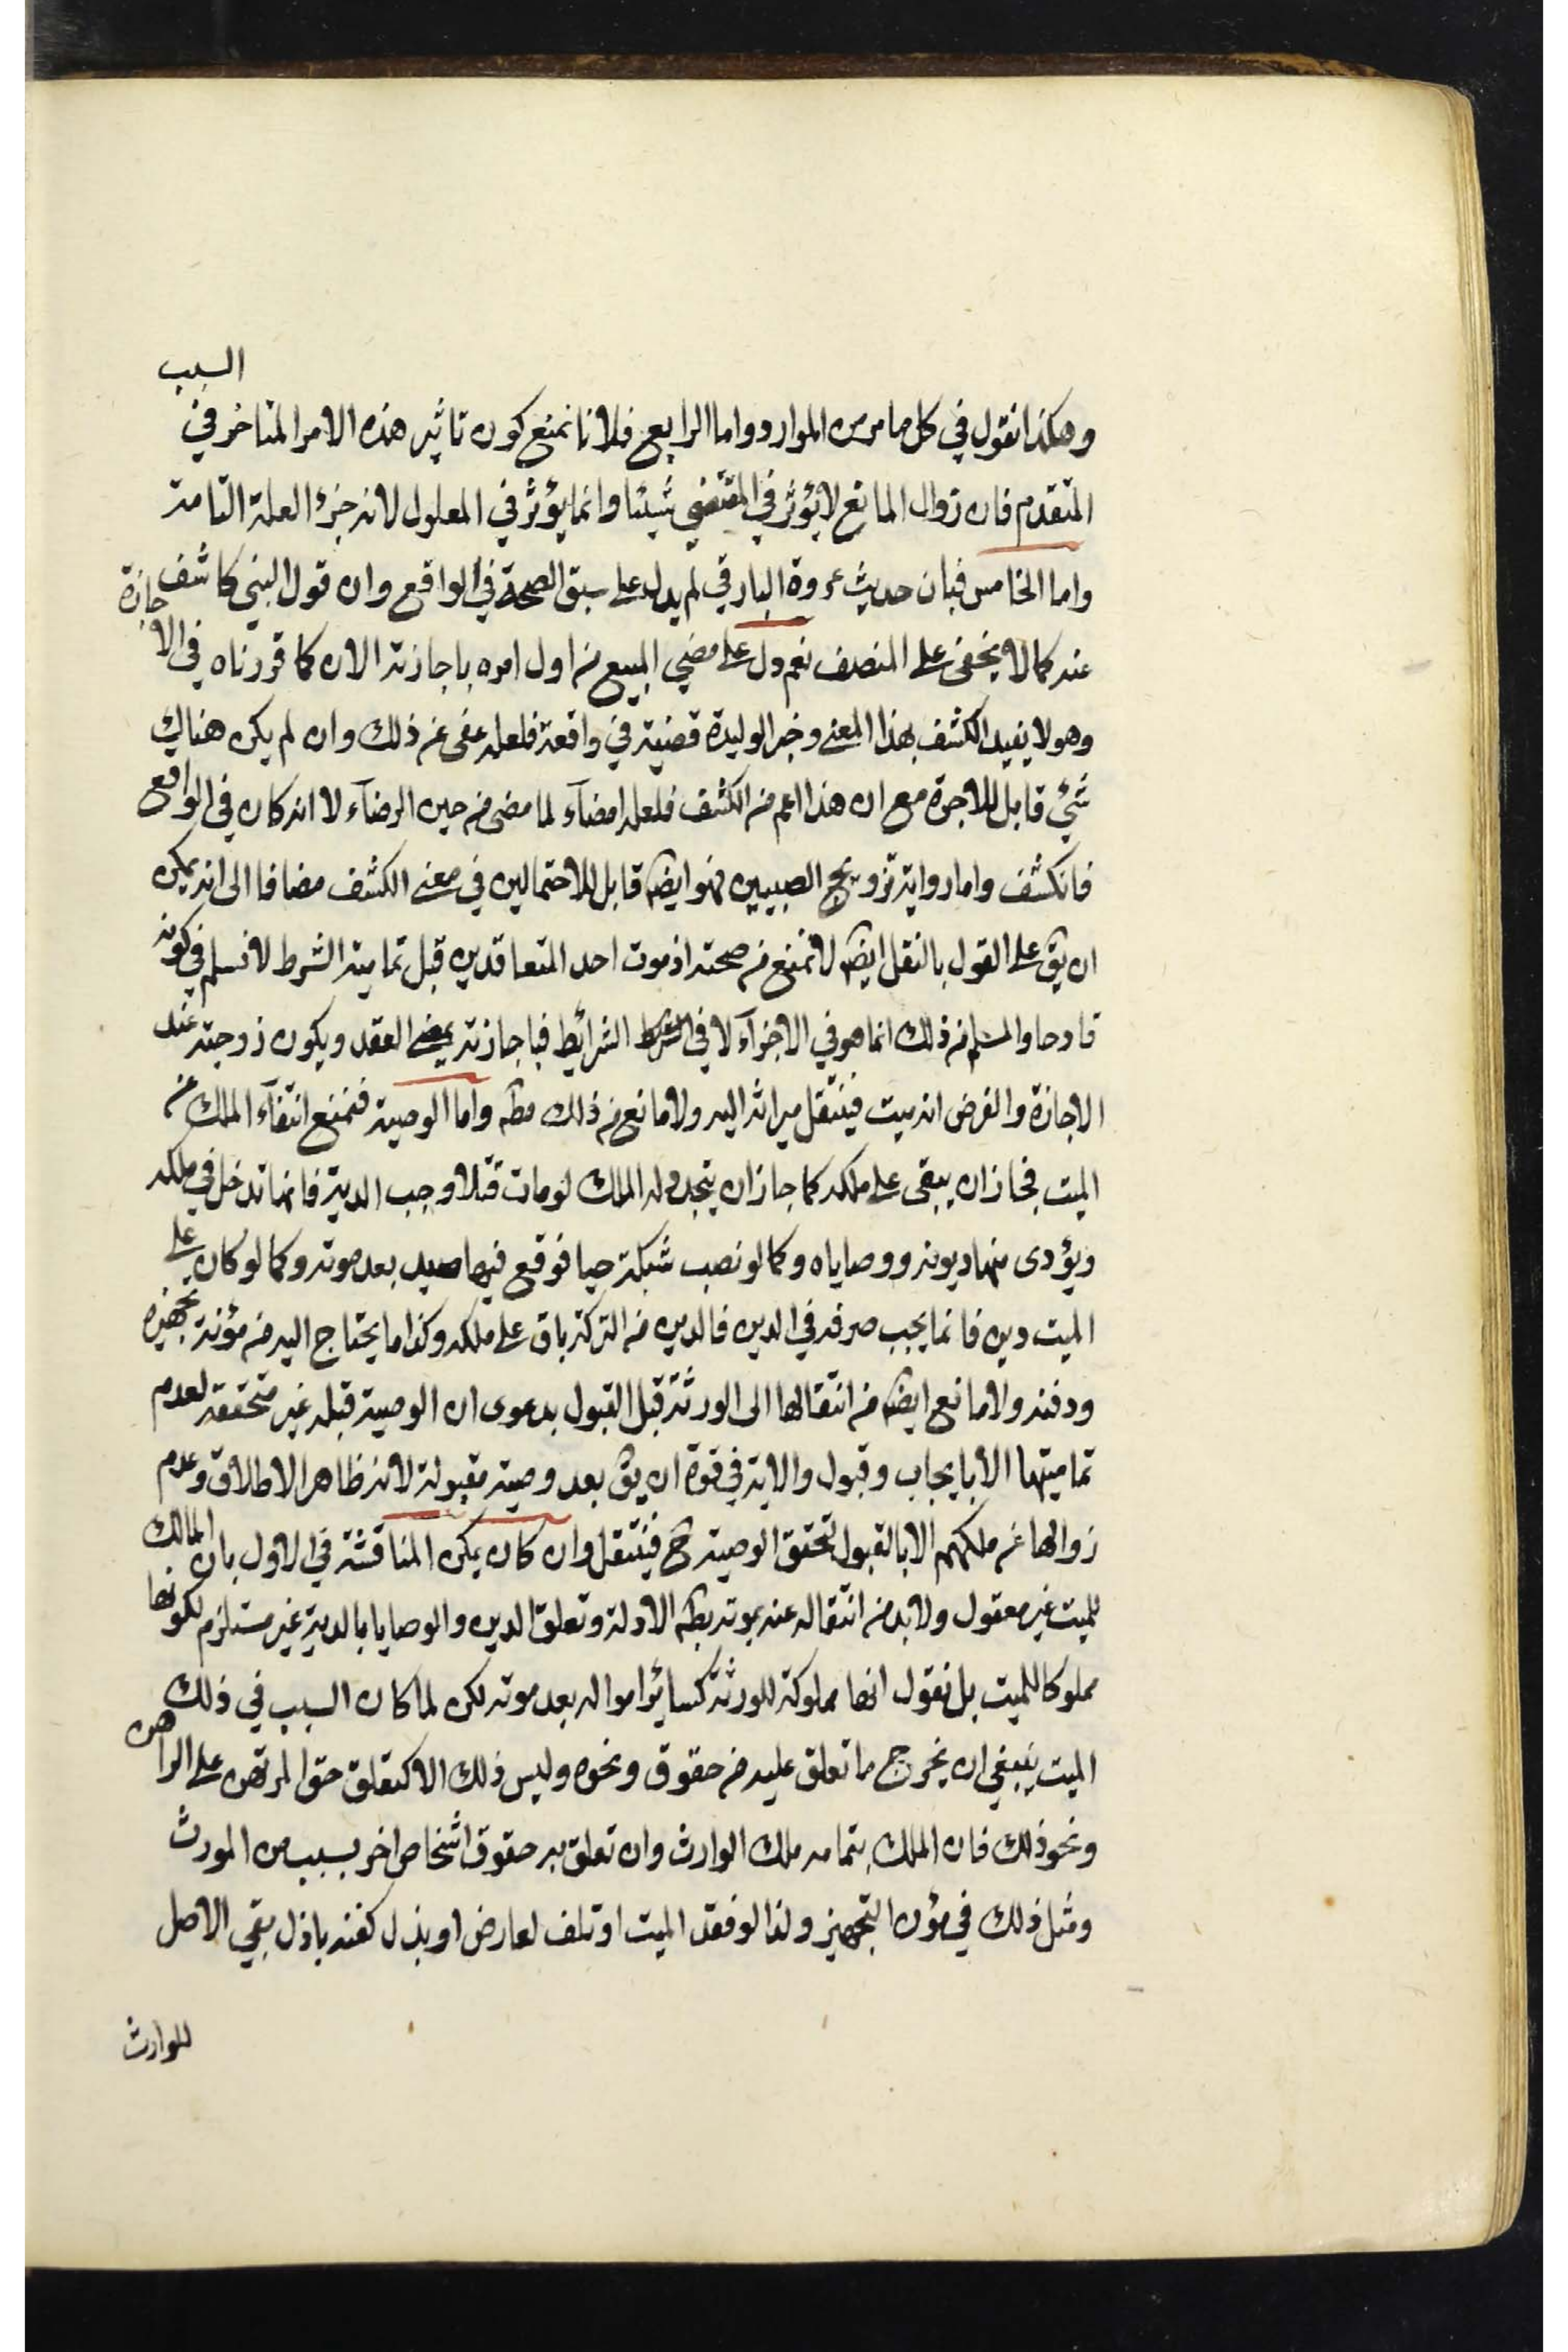 وهكذا نقول في كل ما مر من الموارد واما الرابع فلانا نمنع كون تاثير هذه الامر المتاخر في السبب
المتقدم فان زوال المانع لا يؤثر في المقتضي شيئا وانما يؤثر في المعلول لانه جزء العلة التامة
واما الخامس فبان حديث عروة البارقي لم يدل على سبق الصحة في الواقع وان قول النبي كاشف
عنه كما لا يخفى على المنصف نعم دل على مضي البيع من اول امره باجازته الان كما قررناه في الاجازة
وهو لا يفيد الكشف بهذا المعنى وخبر الوليدة قضية في واقعة فلعله عفى عن ذلك وان لم يكن هناك
شيء قابل للاجرة مع ان هذا اعم من الكشف فلعله امضاء لما مضى من حين الرضاء لا انه كان في الواقع
فانكشف واما رواية تزويج الصبيين فهو ايضا قابل للاحتمالين في معنى الكشف مضافا الى انه يمكن
ان يق على القول بالنقل ايضا لا نمنع من صحته اذ موت احد المتعاقدين قبل تمامية الشرط لا نسلم في كونه
قادحا والمسلم من ذلك انما هو في الاجزاء لا في الشرائط فباجازته يمضى العقد ويكون زوجته عند
الاجازة والفرض انه ميت فينتقل ميراثه اليه ولا مانع من ذلك مطه واما الوصية فنمنع انتفاء الملك عن
الميت فجاز ان يبقى على ملكه كما جاز ان يتجدد له الملك لو مات قتلا وجب الدية فانها تدخل في ملكه
ويؤدى منها ديونه ووصاياه وكما لو نصب شبكة حيا فوقع فيها صيد بعد موته وكما لو كان على
الميت دين فانما يجب صرفه في الدين فالدين من التركة باق على ملكه وكذا ما يحتاج اليه من مؤنة تجهيزه
ودفنه ولا مانع ايضا من انتقالها الى الورثة قبل القبول بدعوى ان الوصية قبله غير متحققة لعدم
تماميتها الا بايجاب وقبول والاية في قوة ان يق بعد وصية مقبولة لانه ظاهر الاطلاق وعدم
زوالها عن ملكهم الا بالقبول لتحقق الوصية ح فينتقل وان كان يمكن المناقشة في الاول بان المالك
للميت غير معقول ولا بد من انتقاله عنه بموته بظه الادلة وتعلق الدين والوصايا بالدية غير مستلزم لكونها
مملوكا للميت بل نقول انها مملوكة للورثة كسائر امواله بعد موته لكن لما كان السبب في ذلك
الميت ينبغي ان يخرج ما تعلق عليه من حقوق ونحوه وليس ذلك الا كتعلق حق المرتهن على الراهن
ونحو ذلك فان الملك بتمامه ملك الوارث وان تعلق به حقوق اشخاص اخر بسبب من المورث
ومثل ذلك في مؤن التجهيز ولذا لو فقد الميت او تلف لعارض او بذل كفنه باذل بقي الاصل
للوارث